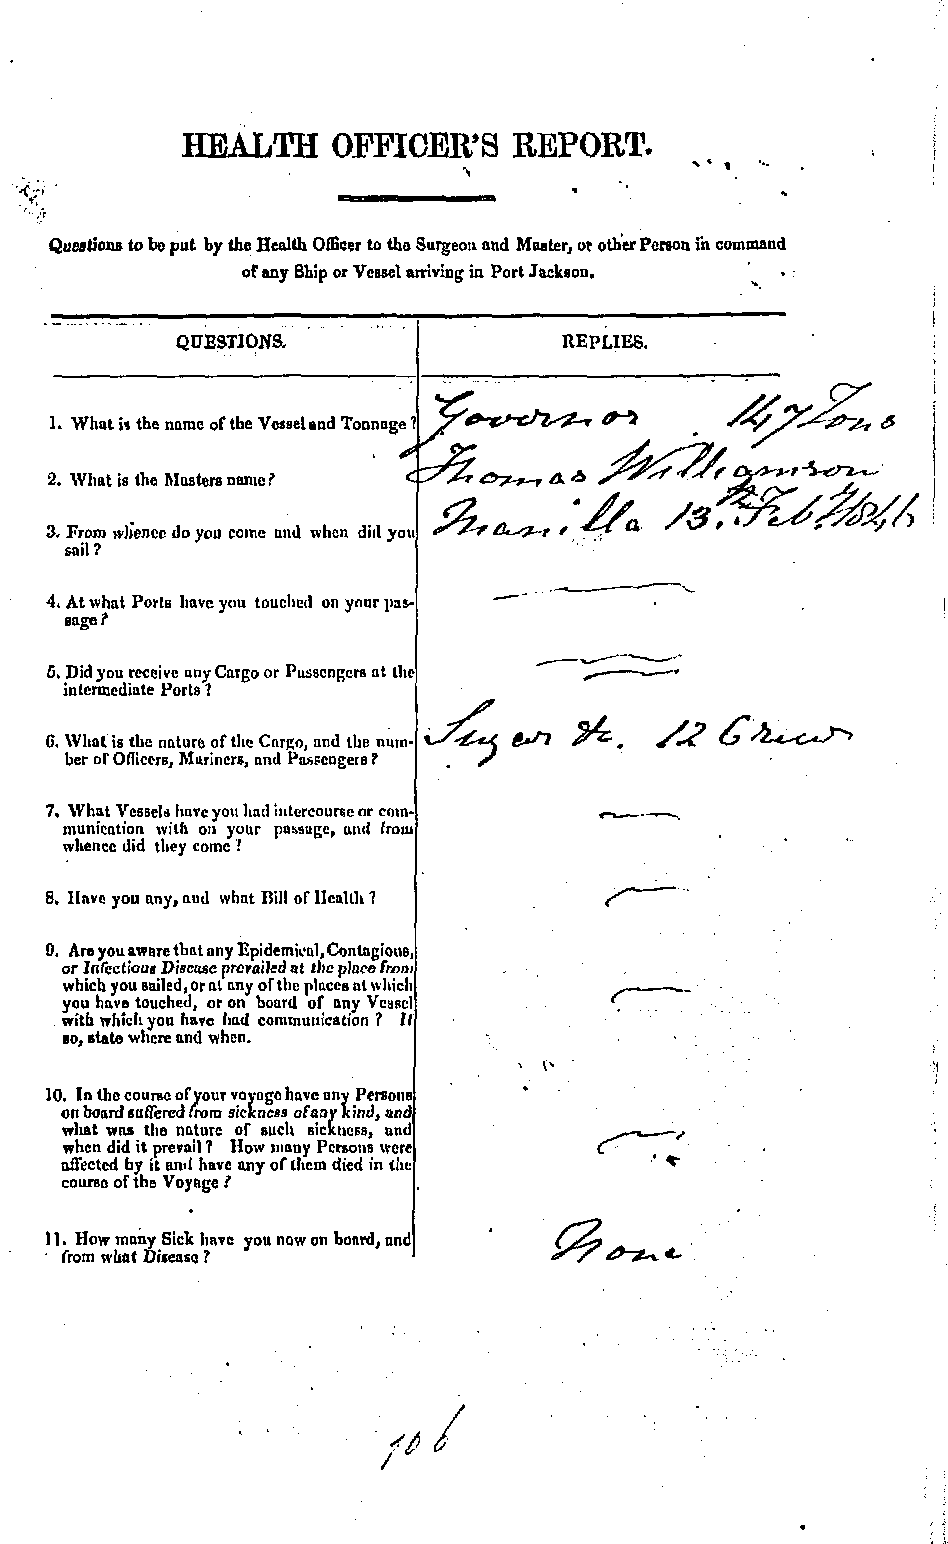 HEALTH OFFICER'S REPORT.
Questions to be put by the Health Officer to the Surgeon and Master, or other Person in command
of any Ship or Vessel arriving in Port Jackson.
QUESTIONS. REPLIES.
1. What is the name of the Vessel and Tonnage? Governor 147 Tons
2. What is the Masters name? Thomas Williamson
3. From whence do you come and when did you Manilla 13th Feby 1846
sail?
4. At what Ports have you touched on your pas-
sage?
5. Did you receive any Cargo or Passengers at the
intermediate Ports?
6. What is the nature of the Cargo, and the num- Sugar &c. 12 Crew
ber of Officers, Mariners, and Passengers?
7. What Vessels have you had intercourse or com-
munication with on your passage, and from
whence did they come?
8. Have you any, and what Bill of Health?
9. Are you aware that any Epidemical, Contagious,
or Infectious Disease prevailed at the place from
which you sailed, or at any of the places at which
you have touched, or on board of any Vessel
with which you have had communication? If
so, state where and when.
10. In the course of your voyage have any Persons
on board suffered from sickness of any kind, and
what was the nature of such sickness, and
when did it prevail? How many Persons were
affected by it and have any of them died in the
course of the Voyage?
11. How many Sick have you now on board, and None
from what Disease?
106